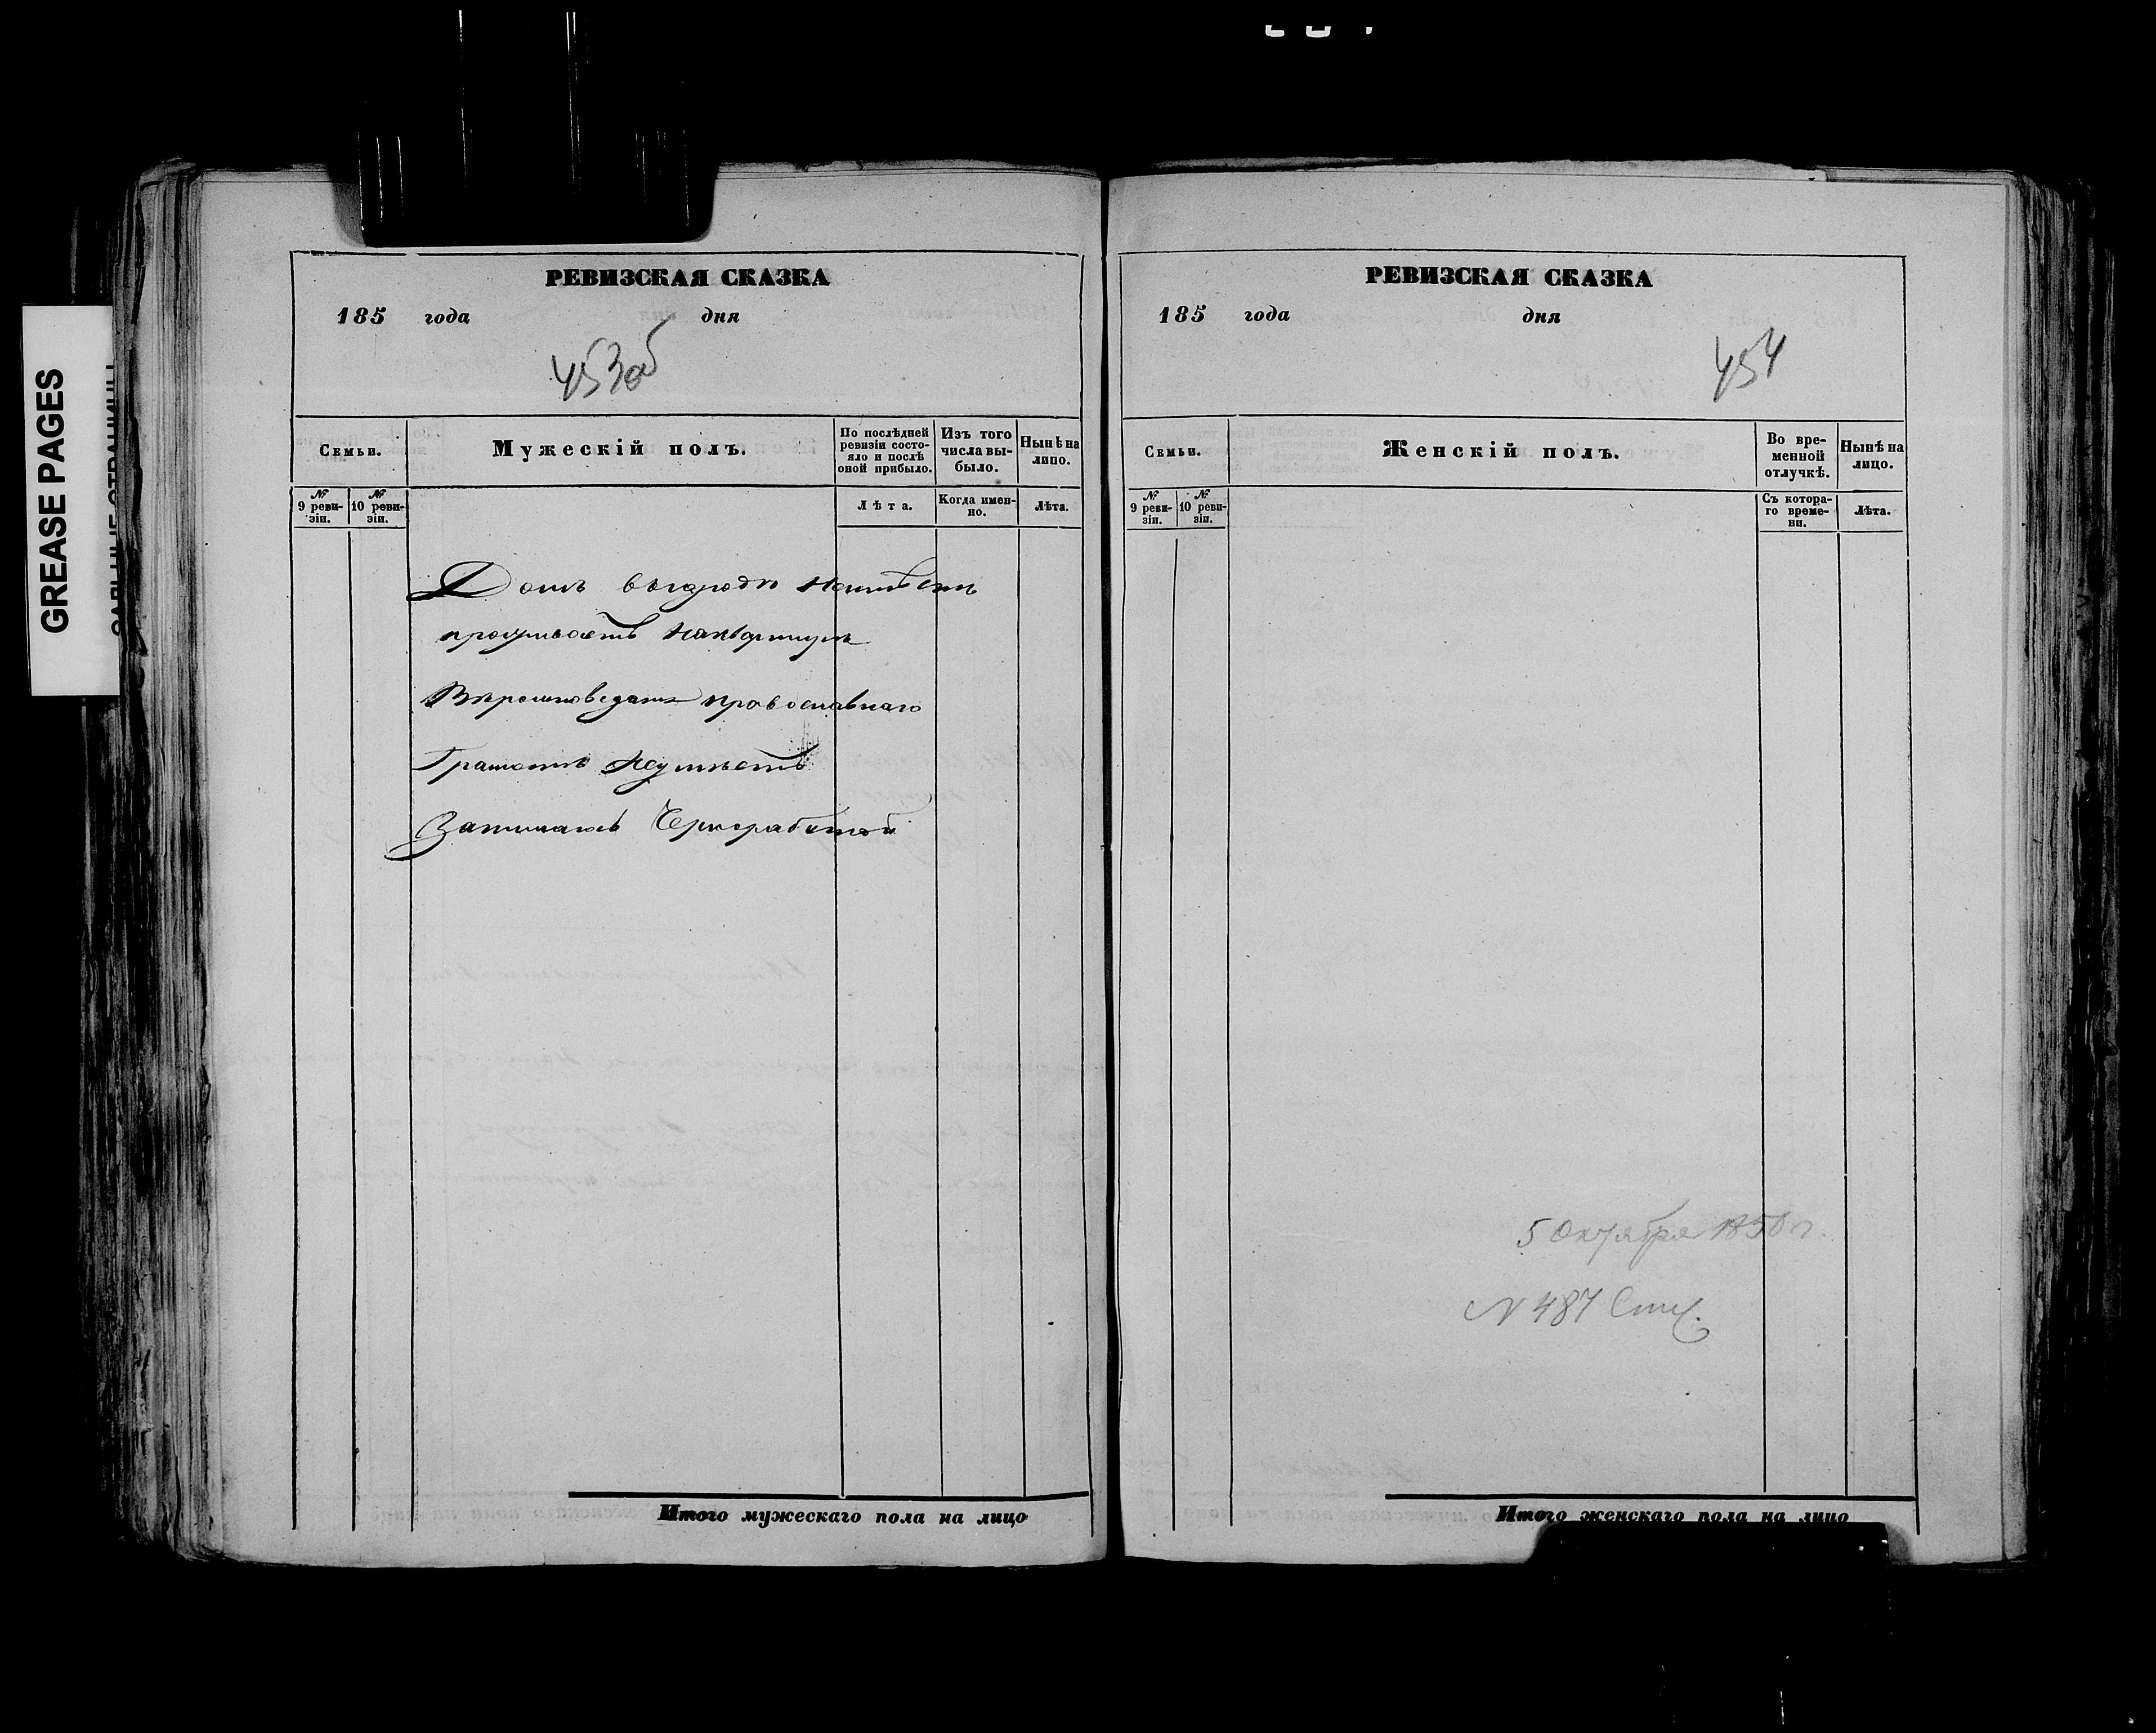 GREASE PAGES
РЕВИЗСКАЯ СКАЗКА
185 года дня
453об
Семьи.
Мужескій полъ.
По послѣдней ревизіи состояло и послѣ оной прибыло.
Изъ того числа выбыло.
Нынѣ на лицо.
№ 9 ревизіи.
№ 10 ревизіи.
Лѣта.
Когда именно.
Лѣта.
Домъ въ городѣ неимѣетъ
проживаетъ наквартирѣ
Вѣроисповеданія православнаго
Грамотѣ Неумѣетъ
Занимаюсь Чернработой
Итого мужескаго пола на лицо
РЕВИЗСКАЯ СКАЗКА
185 года дня
454
Семьи.
Женскій полъ.
Во временной отлучкѣ.
Нынѣ на лицо.
№ 9 ревизіи.
№ 10 ревизіи.
Съ котораго времени.
Лѣта.
5 Октября 1850 г.
N 487
Итого женскаго пола на лицо